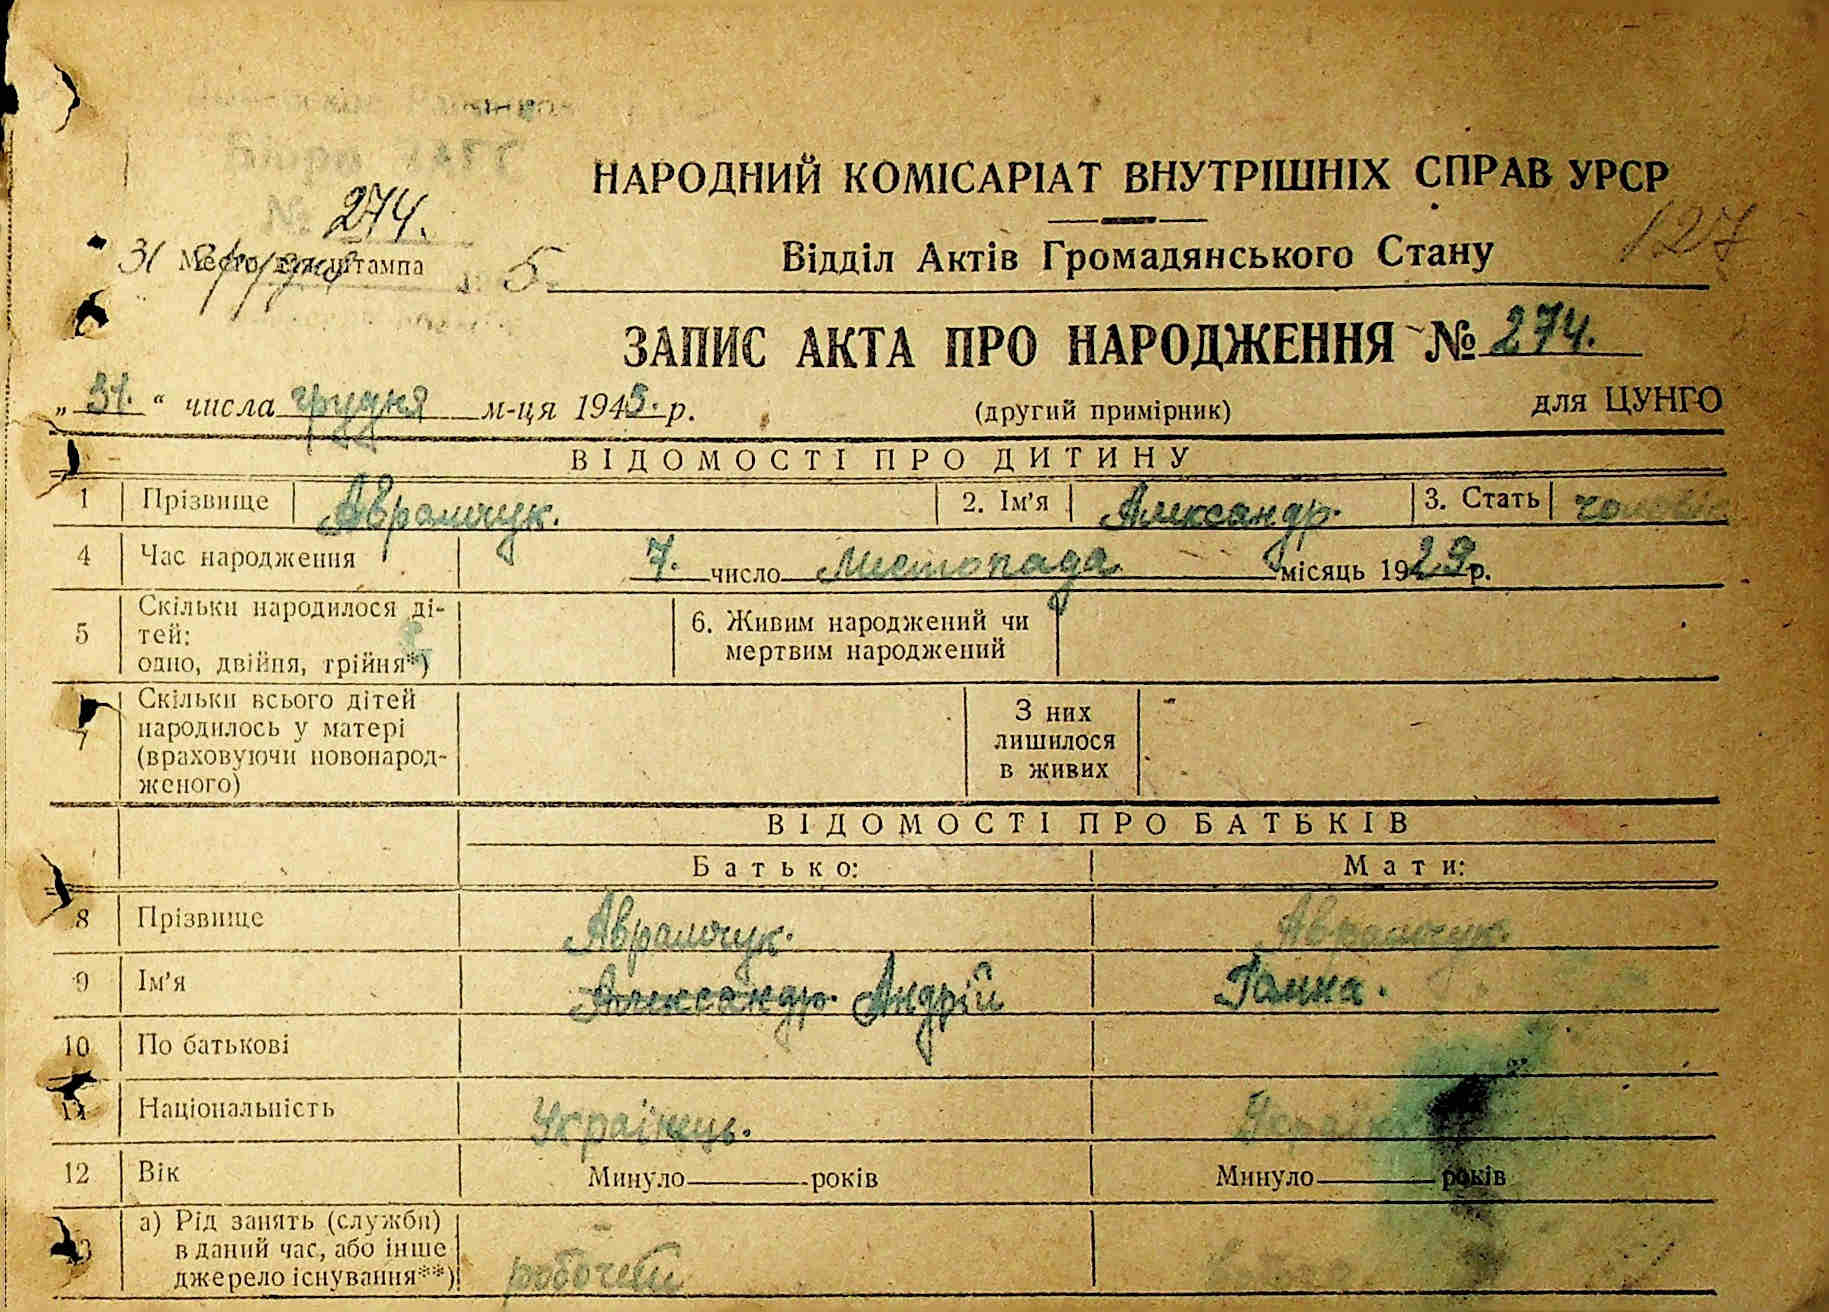 Бюро ЗАГС
№ 274.
НАРОДНИЙ КОМІСАРІАТ ВНУТРІШНІХ СПРАВ УРСР
127
31 грудня 5
Место для штампа
Відділ Актів Громадянського Стану
ЗАПИС АКТА ПРО НАРОДЖЕННЯ № 274.
„31.“ числа грудня м-ця 1945. р.
(другий примірник)
для ЦУНГО
ВІДОМОСТІ ПРО ДИТИНУ
1 Прізвище Аврамчук. 2. Ім'я Александр. 3. Стать
4 Час народження 7. число листопада місяць 1929 р.
5 Скільки народилося ді-
тей:
одно, двійня, трійня*)
6. Живим народжений чи
мертвим народжений
7 Скільки всього дітей
народилось у матері
(враховуючи новонарод-
женого)
З них
лишилося
в живих
ВІДОМОСТІ ПРО БАТЬКІВ
Батько: Мати:
8 Прізвище Аврамчук. Аврамчук.
9 Ім'я Александр. Андрій Ганна.
10 По батькові
11 Національність Українець. Українка
12 Вік Минуло років Минуло років
13 а) Рід занять (служби)
в даний час, або інше
джерело існування**)
робочий